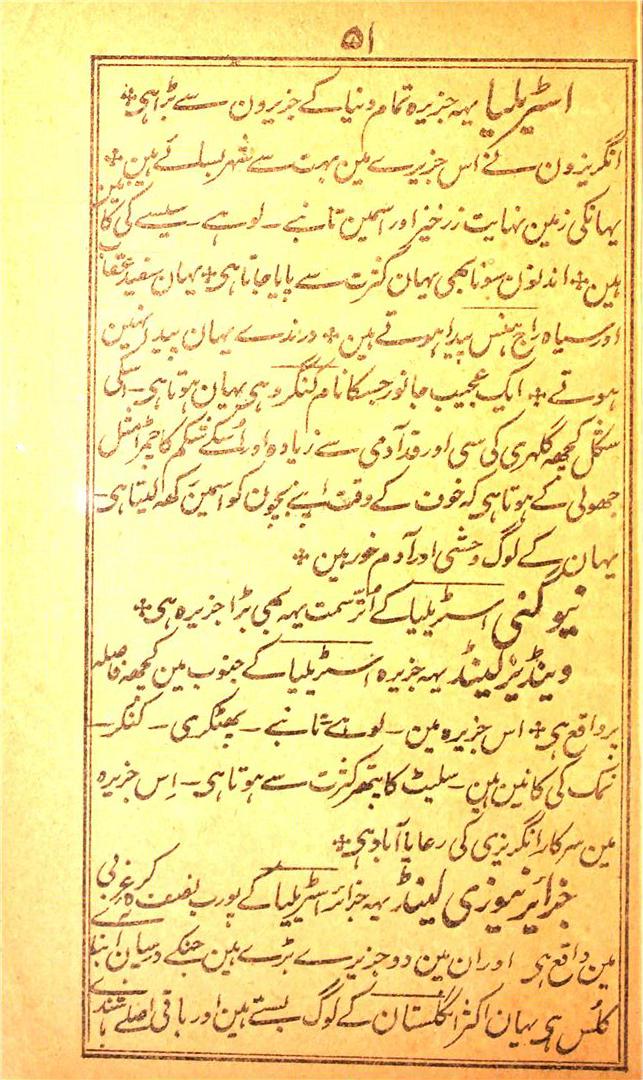 ۵۱
اسٹریلیا یہہ جزیرہ تمام دنیا کے جزیرون سے بڑا ہی +
انگریزون نے اس جزیرے مین بہت سے شہر بسائے ہین +
یہانکی زمین نہایت زرخیز اور اسمین تانبے - لوہے - سیسے کی کانین
ہین + اندلون سونا بھی یہان کثرت سے پایا جاتا ہی + یہان سفید عقاب
اور سیاہ راج ہنس پیدا ہوتے ہین + درندے یہان پیدا نہین
ہوتے + ایک عجیب جانور جسکا نام کنگرو ہی یہان ہوتا ہی - اسکی
شکل کچھہ گلہری کی سی اور قد آدمی سے زیادہ اور اُسکے شکم کا چمڑا مثل
جھولی کے ہوتا ہی کہ خوف کے وقت اپنے بچون کو اسمین رکھہ لیتا ہی -
یہان کے لوگ وحشی اور آدم خور ہین +
نیو گنی اسٹریلیا کے اُتّر سمت یہہ بھی بڑا جزیرہ ہی +
وینڈیزلینڈ یہہ جزیرہ اسٹریلیا کے جنوب مین کچھہ فاصلہ
پر واقع ہی + اس جزیرہ مین - لوہے - تانبے - پھٹکری - کنکر -
نمک کی کانین ہین - سلیٹ کا پتھر کثرت سے ہوتا ہی - اِس جزیرہ
مین سرکار انگریزی کی رعایا آباد ہی +
جزائر نیوزی لینڈ یہہ جزائر اسٹریلیا کے پورب نصف کرہ غربی
مین واقع ہی اور ان مین دو جزیرے بڑے ہین جنکے درمیان ابنا
کُس ہی یہان اکثر انگلستان کے لوگ بستے ہین اور باقی اصلے باشندے